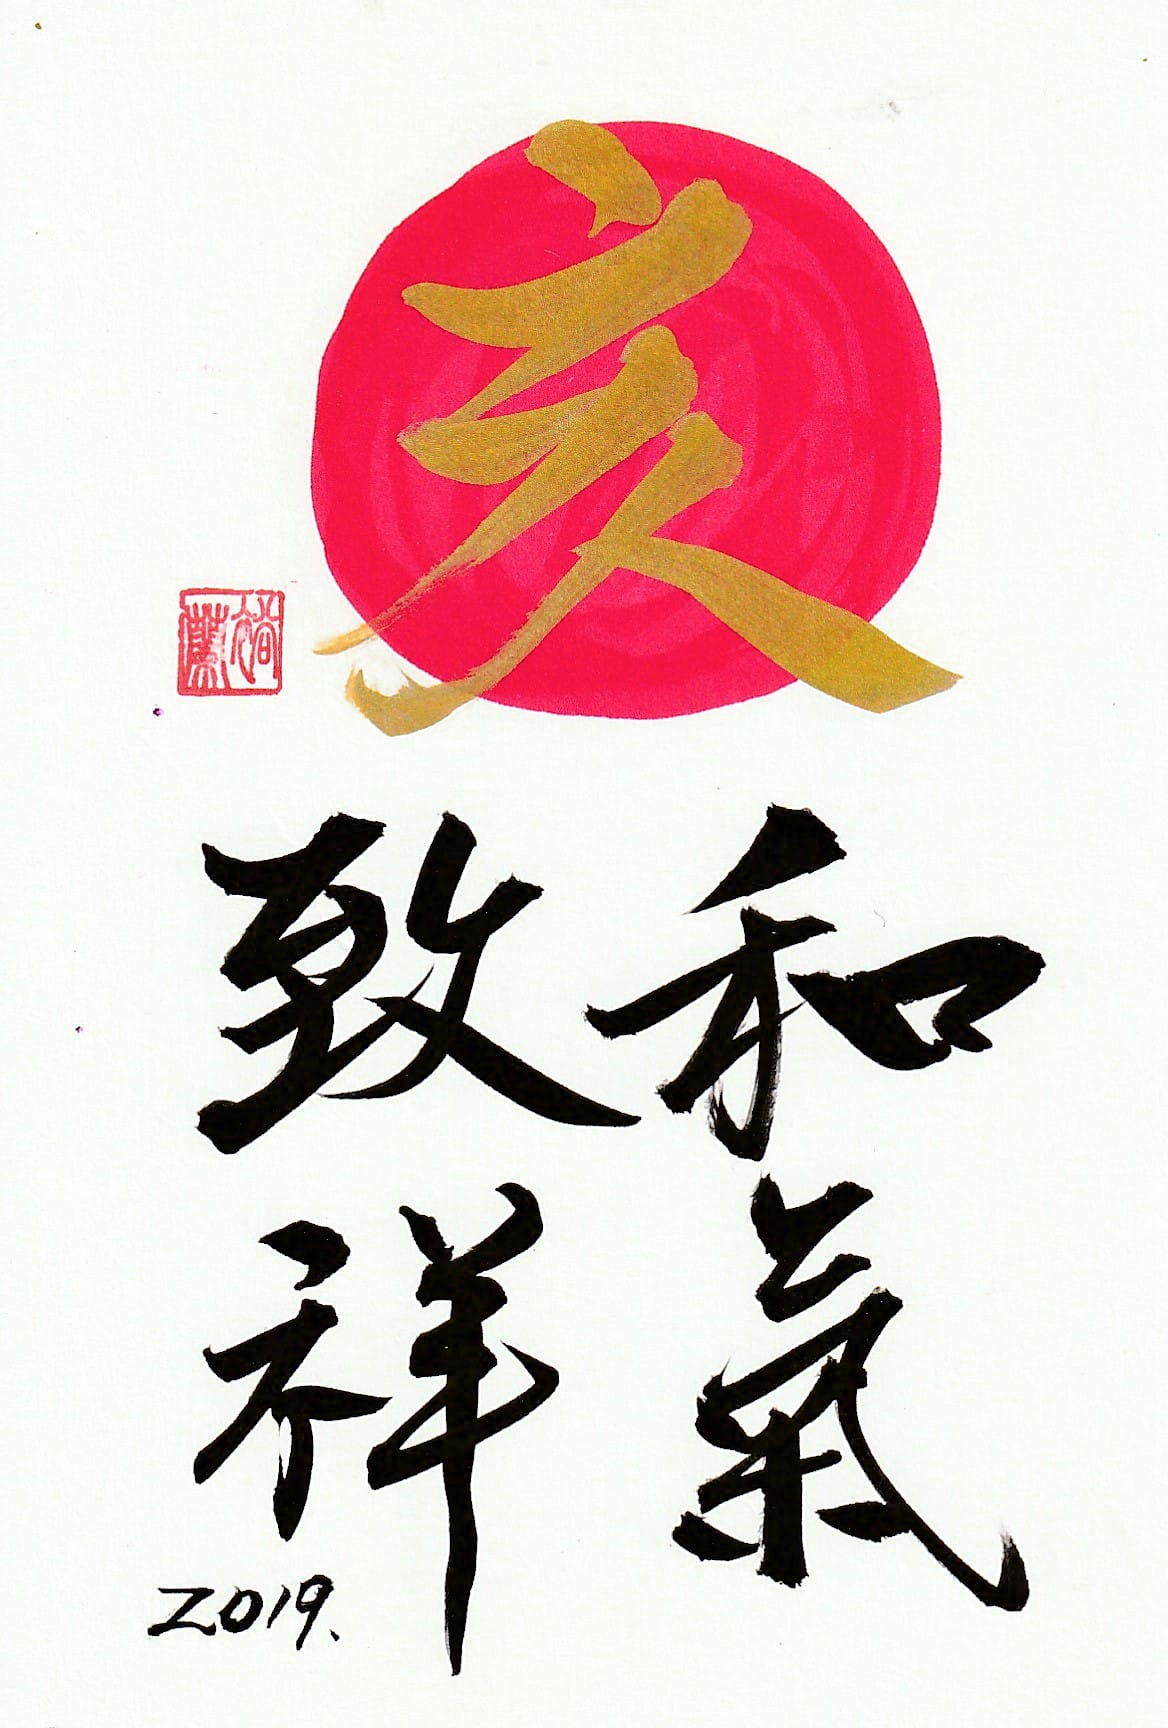 亥
和氣
致祥
2019.